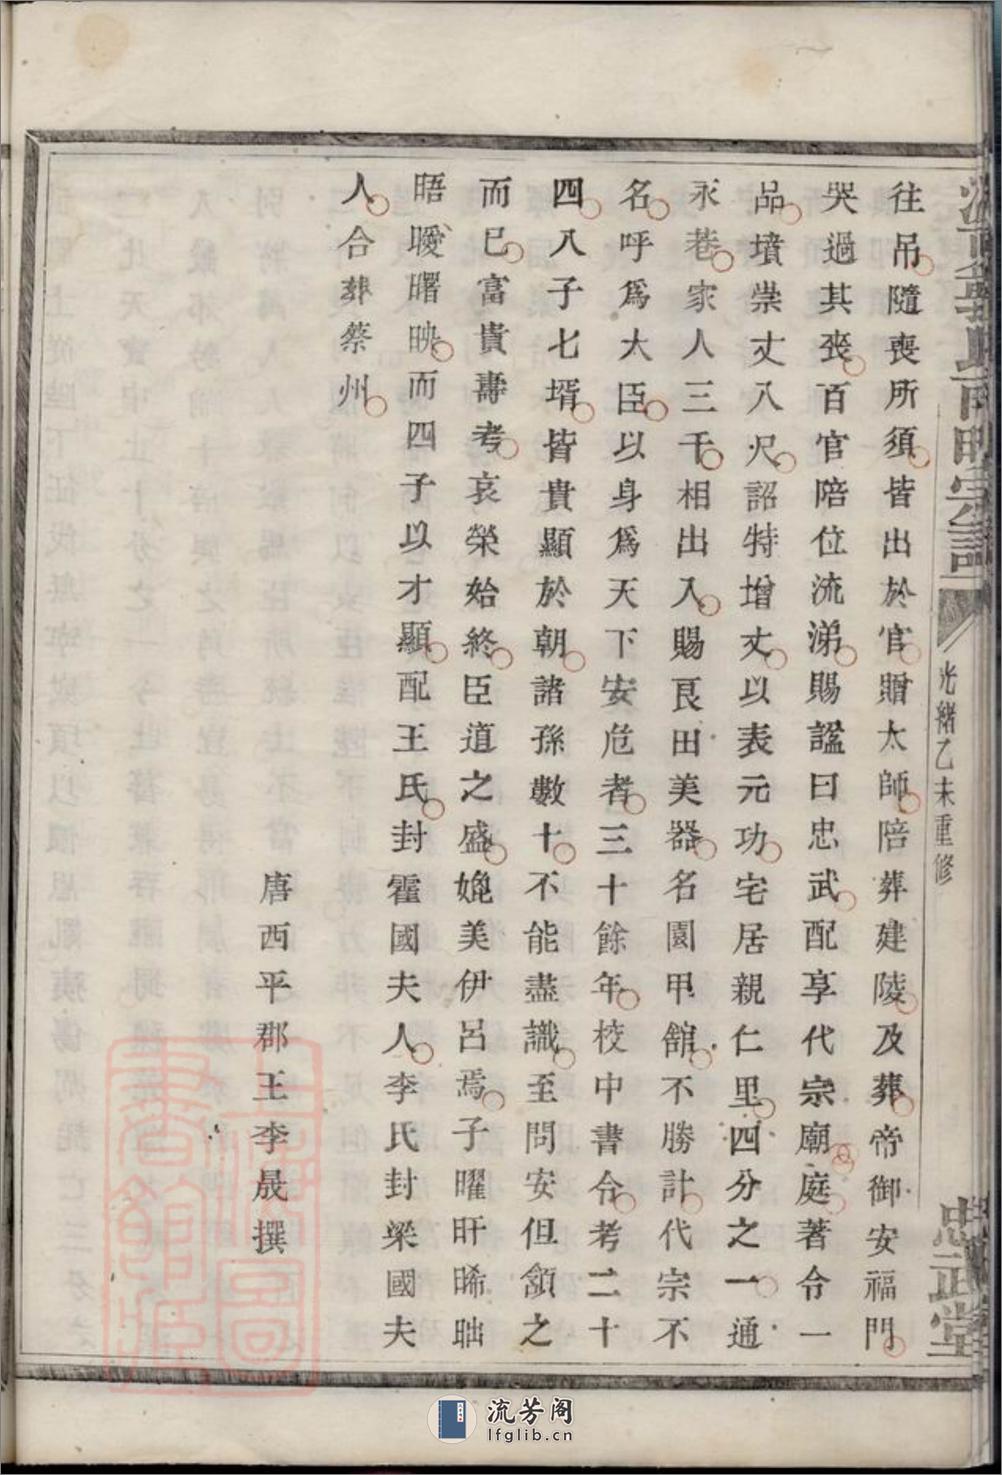 往吊隨喪所須皆出於官贈太師陪葬建陵及葬帝御安福門
哭過其喪百官陪位流涕賜謚曰忠武配享代宗廟庭著令一
品墳崇丈八尺詔特增丈以表元功宅居親仁里四分之一通
永巷家人三千相出入賜良田美器名園甲舘不勝計代宗不
名呼爲大臣以身爲天下安危者三十餘年校中書令考二十
四八子七壻皆貴顯於朝諸孫數十不能盡識至問安但頷之
而已富貴壽考哀榮始終臣道之盛媲美伊呂焉子曜旰晞昢
晤曖曙映而四子以才顯配王氏封霍國夫人李氏封梁國夫
人合葬蔡州
唐西平郡王李晟撰
宗譜
光緒乙未重修
忠武堂
流芳阁
lfglib.cn